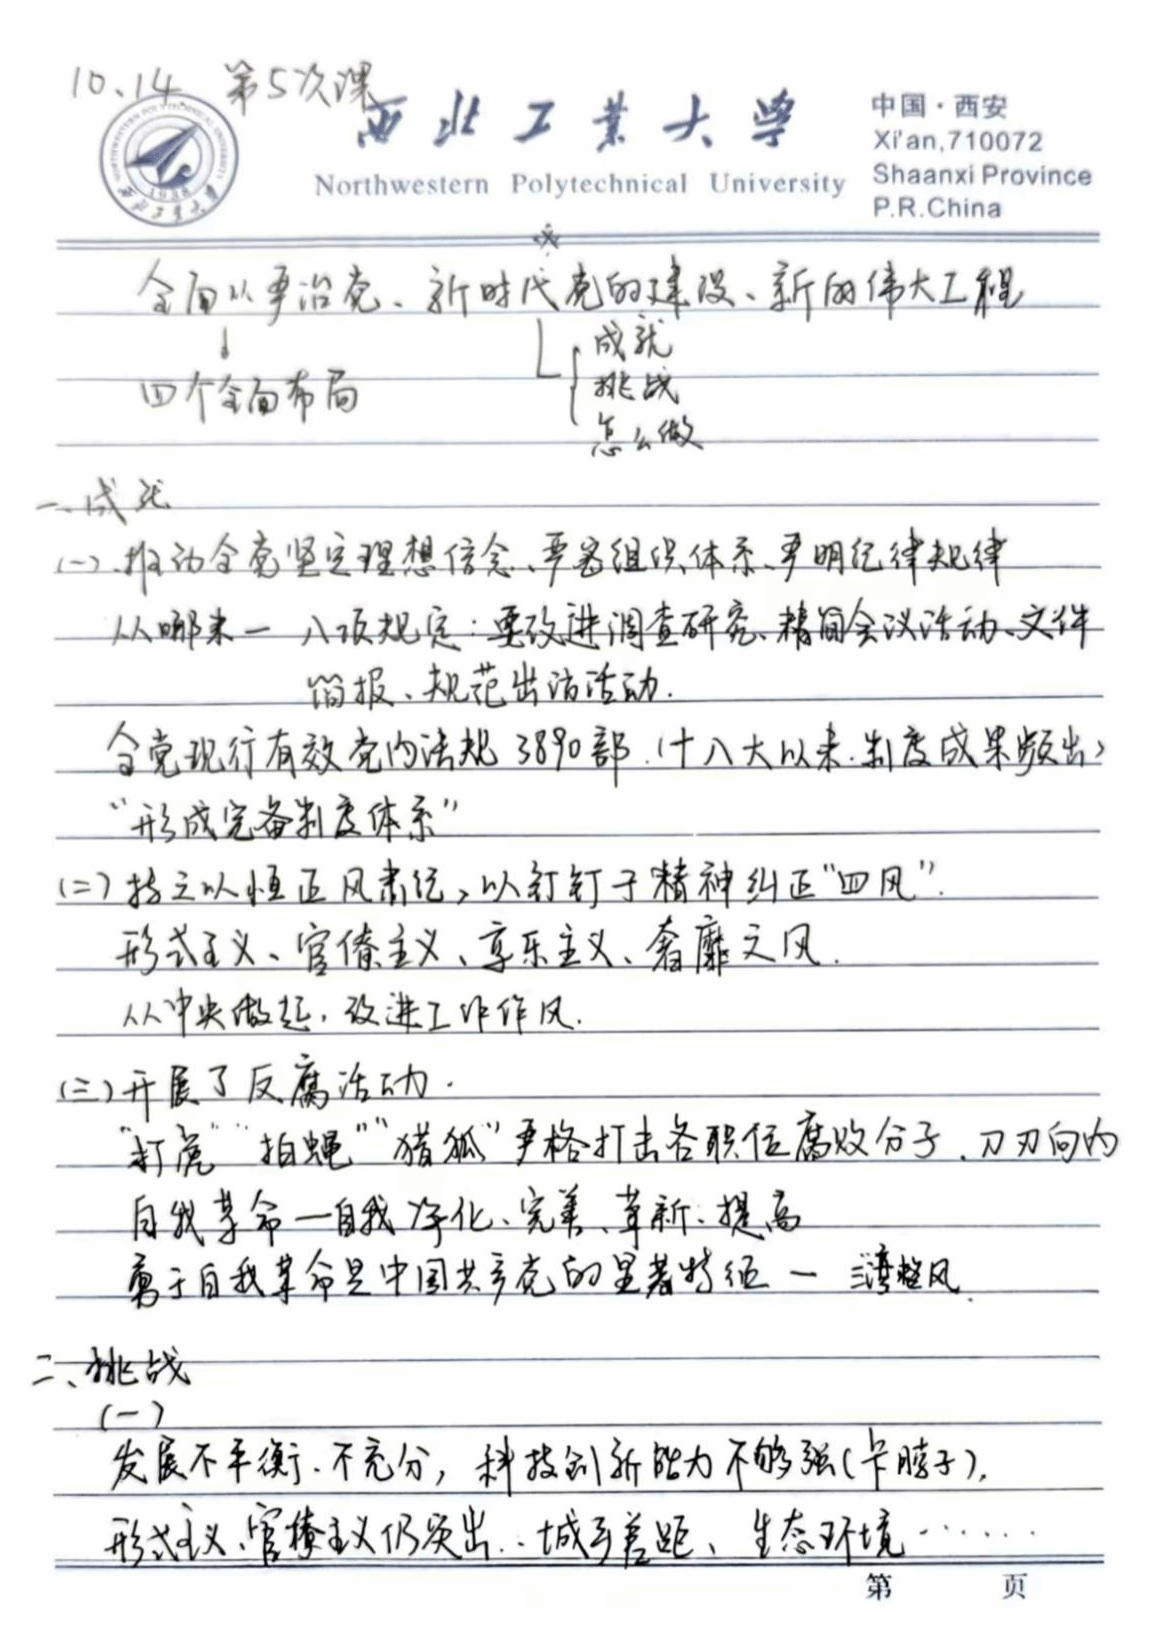 10、14、第5次课
西北工业大学
Northwestern Polytechnical University
中国·西安
Xi'an,710072
Shaanxi Province
P.R.China
NORTHWESTERN POLYTECHNICAL UNIVERSITY
1938
西北工业大学
全面从严治党、新时代党的建设、新的伟大工程
成就
四个全面布局
挑战
怎么做
一、成就
(一)、推动全党坚定理想信念、严密组织体系、严明纪律规律
从哪来一 八项规定：要改进调查研究、精简会议活动、文件
简报、规范出访活动.
全党现行有效党内法规 3890部.(十八大以来.制度成果频出)
“形成完备制度体系”
(二)持之以恒正风肃纪,以钉钉子精神纠正“四风”.
形式主义、官僚主义、享乐主义、奢靡之风.
从中央做起.改进工作作风.
(三)开展了反腐活动.
“打虎”“拍蝇”“猎狐”严格打击各职位腐败分子.刀刃向内
自我革命一自我净化、完善、革新、提高
勇于自我革命是中国共产党的显著特征 — 三湾整风.
二、挑战
(一)
发展不平衡.不充分,科技创新能力不够强(卡脖子),
形式主义、官僚主义仍突出..城乡差距、生态环境......
第 页